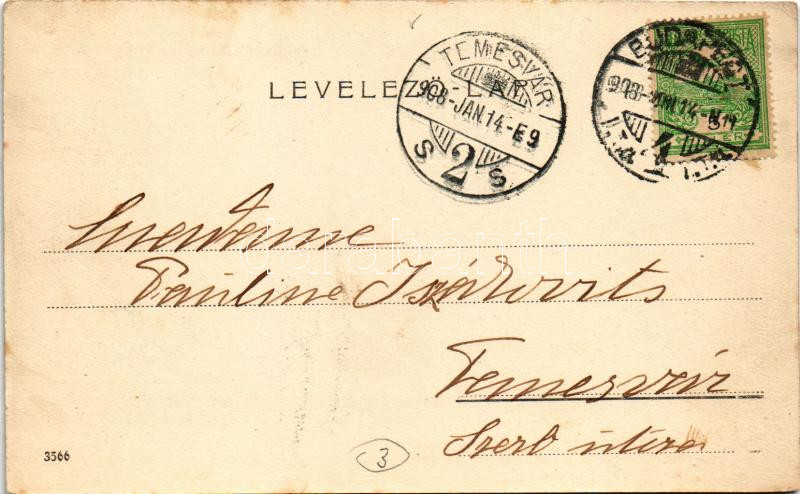 LEVELEZŐ-LAP.
TEMESVÁR
908-JAN.14-E9
S 2 S
BUDAPEST
908-JAN.14-N11
Pauline Izákovits
Temesvár
Szerb utca
3566
3
darabanth